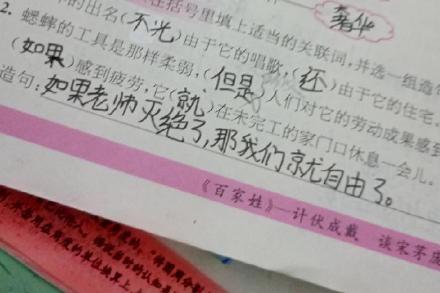 在括号里填上适当的关联词,并选一组造句
奢华
2. 蟋蟀的出名(不光)由于它的唱歌,(还)由于它的住宅。
蟋蟀的工具是那样柔弱,(但是)人们对它的劳动成果感到
(如果)感到疲劳,它(就)在未完工的家门口休息一会儿。
造句:如果老师灭绝了,那我们就自由了。
《百家姓》—计伏成戴 谈宋茅庞